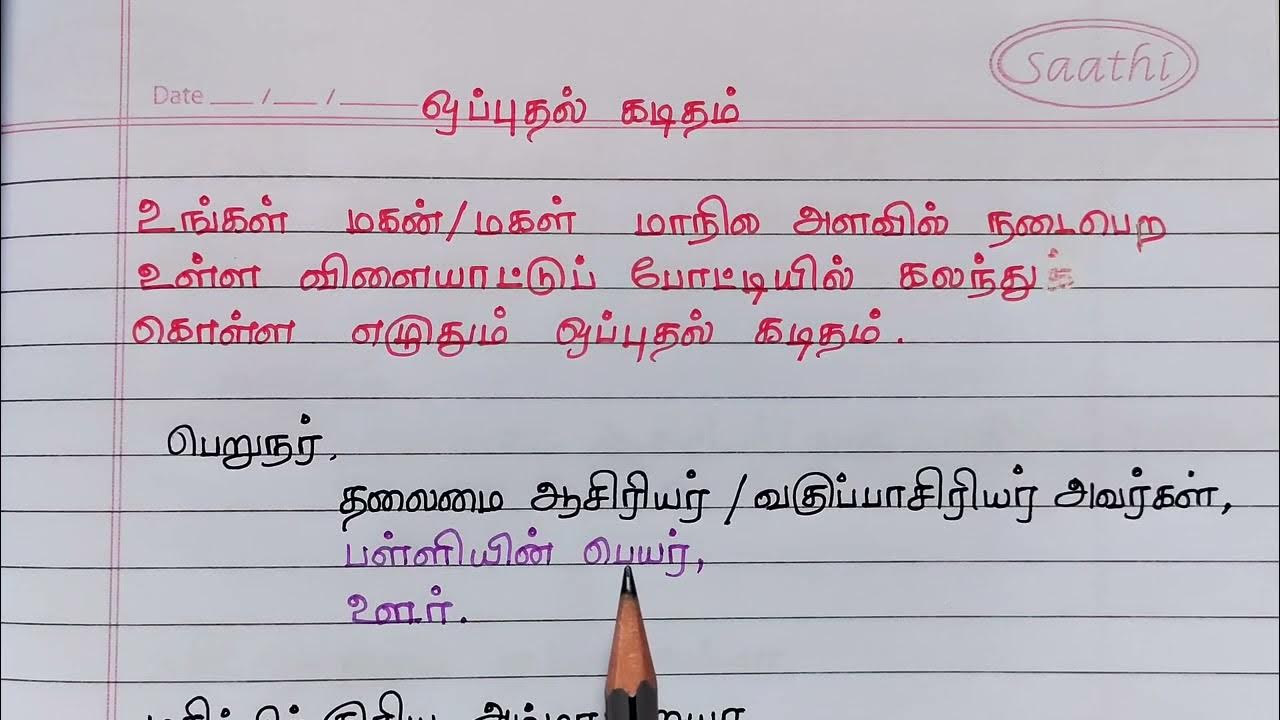 saathi
Date __ / __ / ____ ஒப்புதல் கடிதம்
உங்கள் மகன்/மகள் மாநில அளவில் நடைபெற
உள்ள விளையாட்டுப் போட்டியில் கலந்து
கொள்ள எழுதும் ஒப்புதல் கடிதம்.
பெறுநர்,
தலைமை ஆசிரியர் / வகுப்பாசிரியர் அவர்கள்,
பள்ளியின் பெயர்,
ஊர்.